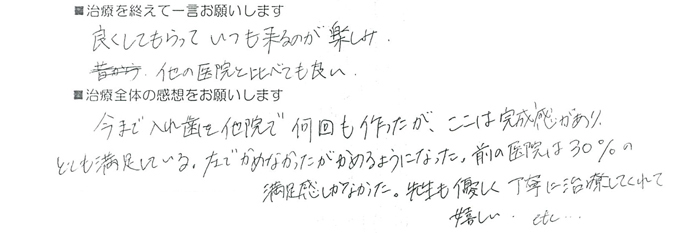 ■治療を終えて一言お願いします
良くしてもらって いつも来るのが楽しみ.
昔から. 他の医院と比べても良い.
■治療全体の感想をお願いします
今まで入れ歯を他院で何回も作ったが、ここは完成感があり、
とても満足している。左でかめなかったがかめるようになった。前の医院は30%の
満足感しかなかった。先生も優しく丁寧に治療してくれて
嬉しい. etc...